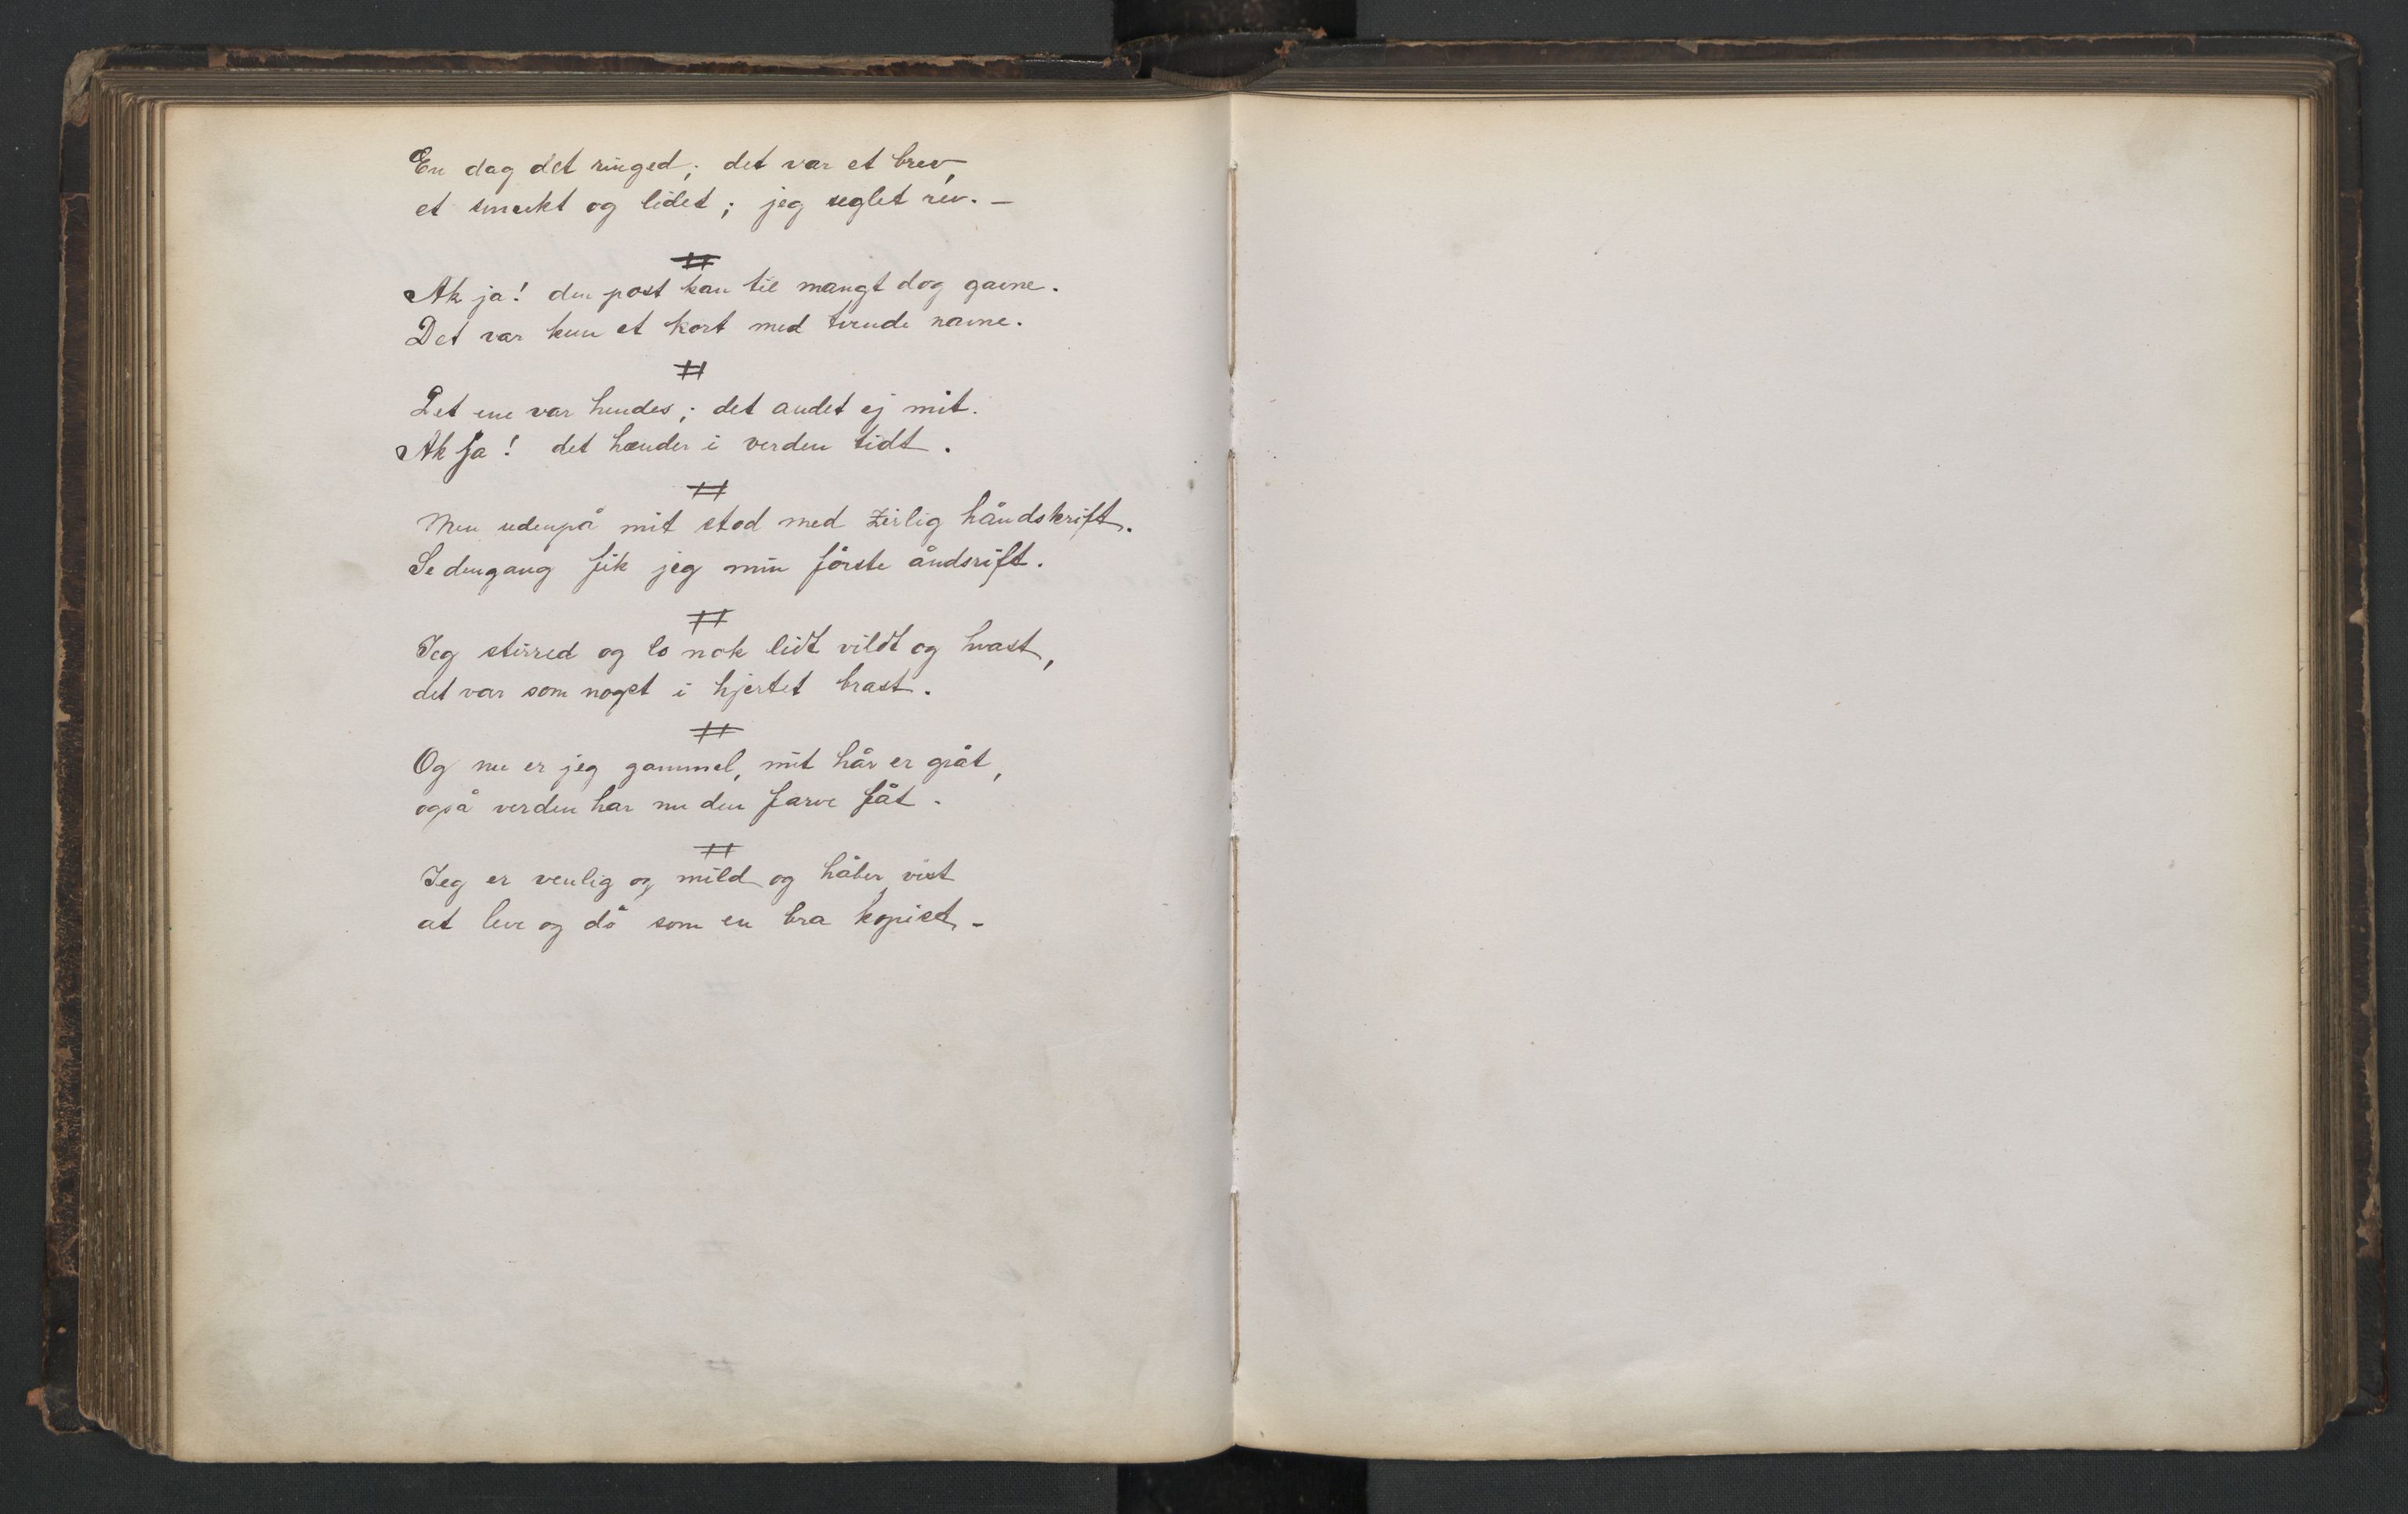 En dag det ringed; det var et brev,
et smukt og lidet; jeg seglet rev. —
#
Ak ja! den post kan til mangt dog gavne.
Det var kun et kort med tvende navne.
#
Det ene var hendes; det andet ej mit.
Ak ja! det hænder i verden tidt.
#
Men udenpå mit stod med zirlig håndskrift.
Se dengang fik jeg min förste åndsrift.
#
Jeg stirred og lo nok lidt vildt og hvast,
det var som noget i hjertet brast.
#
Og nu er jeg gammel, mit hår er gråt,
også verden har nu den farve fåt.
#
Jeg er venlig og mild og håber vist
at leve og dö som en bra kopist.